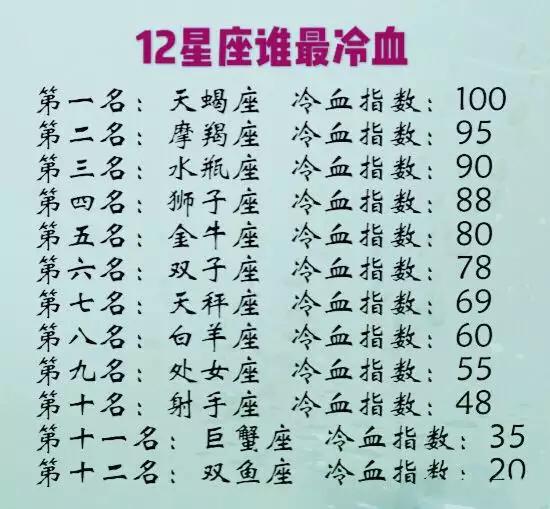 12星座谁最冷血
第一名：天蝎座 冷血指数：100
第二名：摩羯座 冷血指数：95
第三名：水瓶座 冷血指数：90
第四名：狮子座 冷血指数：88
第五名：金牛座 冷血指数：80
第六名：双子座 冷血指数：78
第七名：天秤座 冷血指数：69
第八名：白羊座 冷血指数：60
第九名：处女座 冷血指数：55
第十名：射手座 冷血指数：48
第十一名：巨蟹座 冷血指数：35
第十二名：双鱼座 冷血指数：20